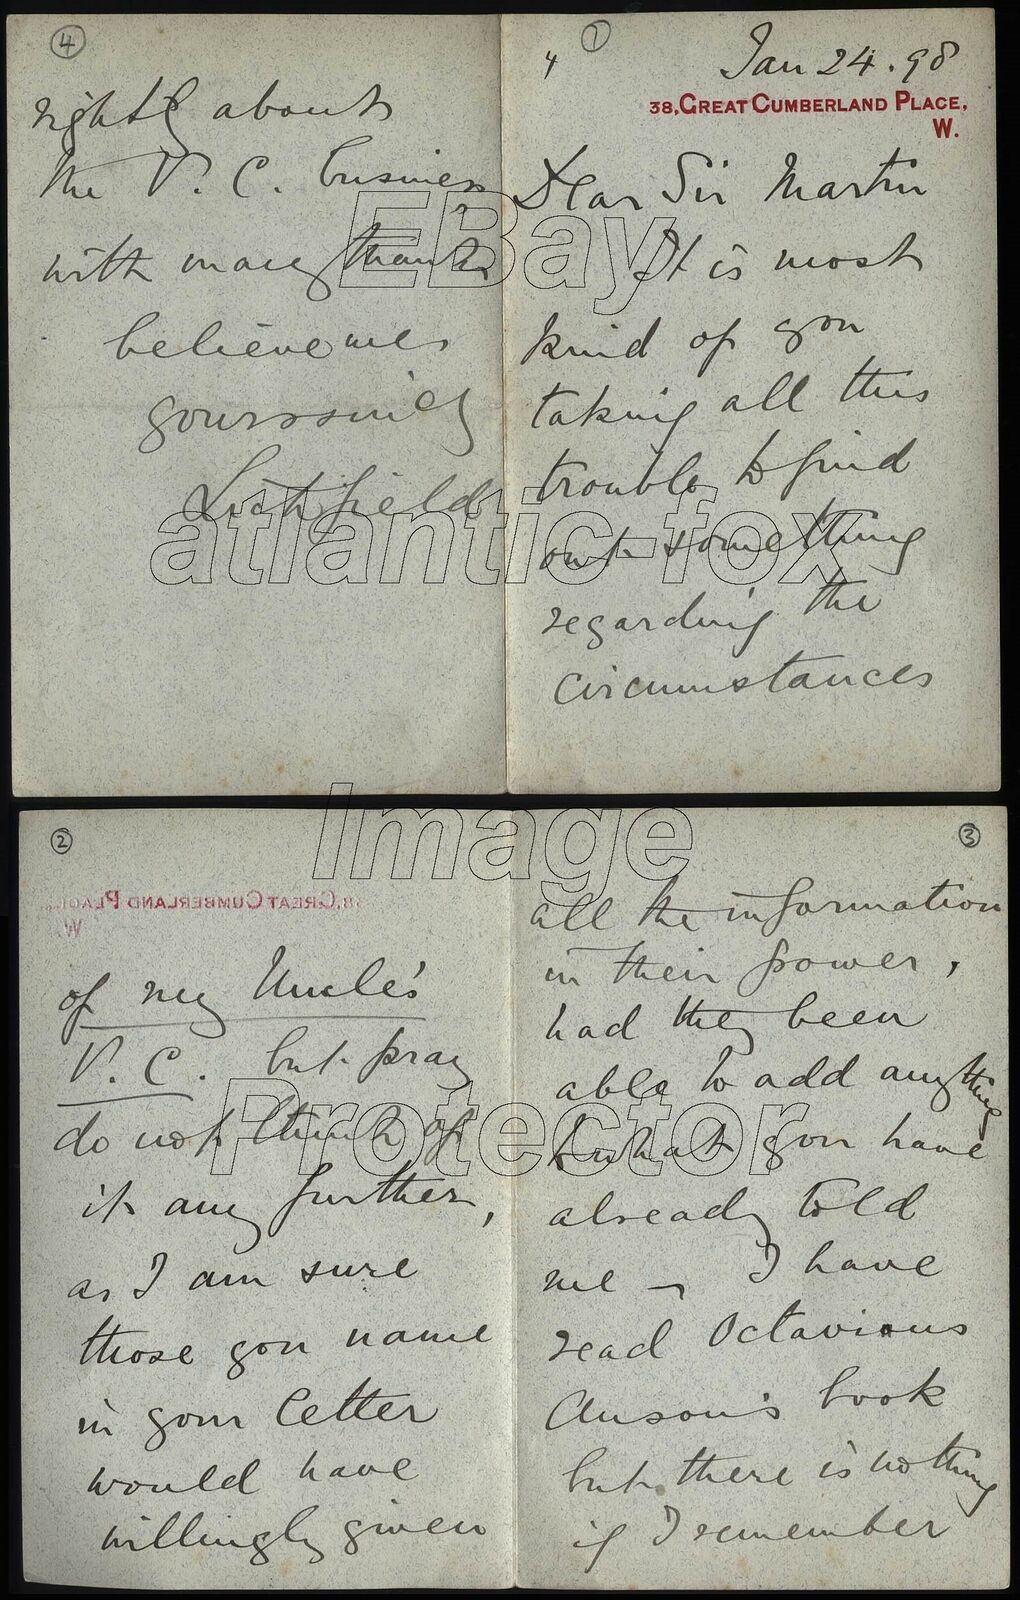 ①
4
Jan 24. 98
38, GREAT CUMBERLAND PLACE,
W.
Dear Sir Martin
It is most
kind of you
taking all this
trouble to find
out something
regarding the
circumstances
②
38, GREAT CUMBERLAND PLACE,
W.
of my Uncle's
V. C. but pray
do not think of
it any further,
as I am sure
those you name
in your letter
would have
willingly given
③
all the information
in their power,
had they been
able to add anything
to what you have
already told
me – I have
read Octavious
Anson's book
but there is nothing
if I remember
④
rightly about
the V. C. business
with many thanks
believe me
yours sincly
Lichfield
EBay
atlantic-fox
Image
Protector